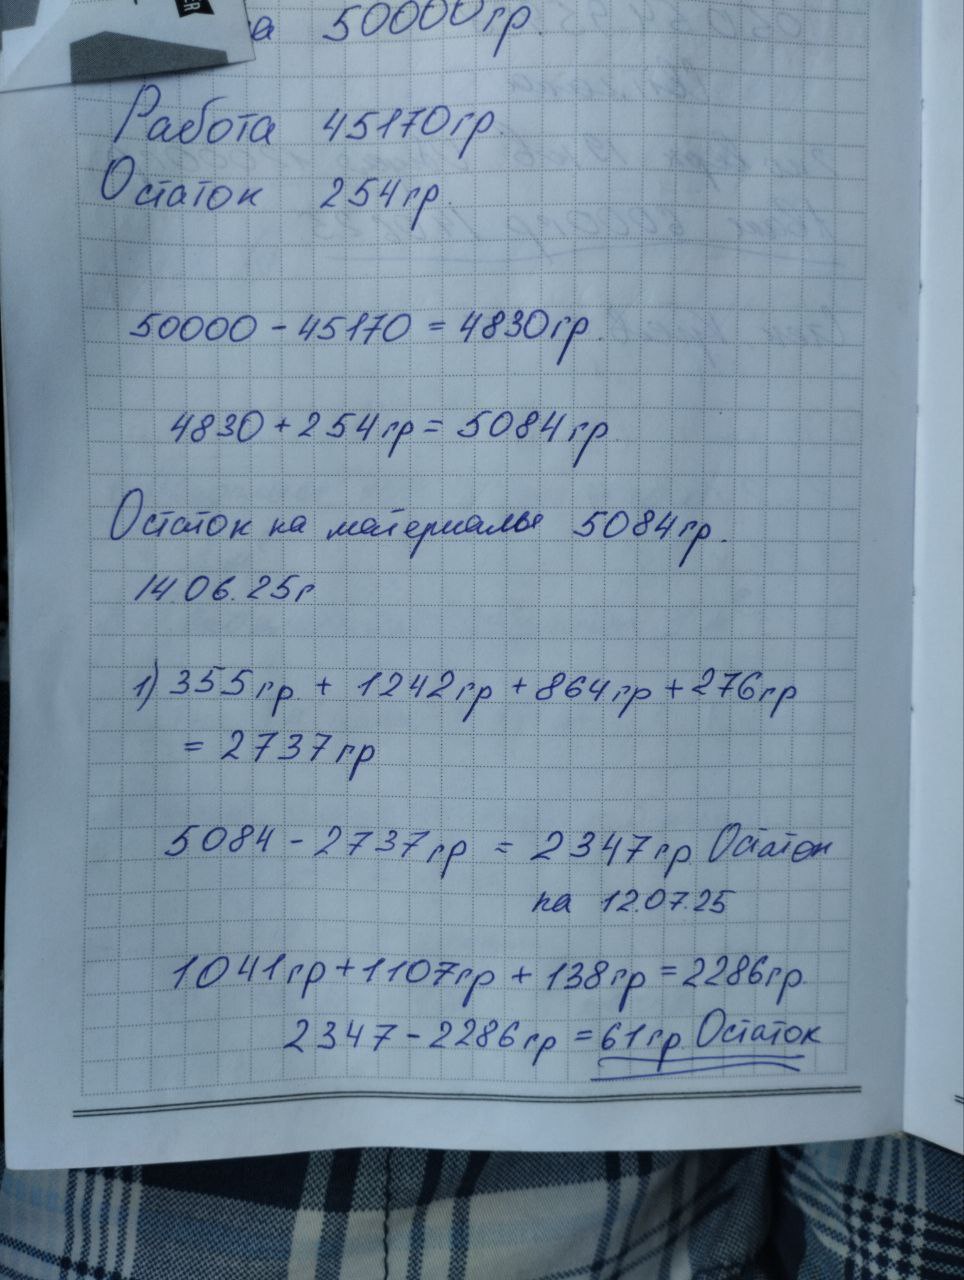 50000гр.
Работа 45170гр
Остаток 254гр.
50000 - 45170 = 4830гр.
4830 + 254гр = 5084гр
Остаток на материалы 5084гр.
14.06.25г
1) 355гр. + 1242гр + 864гр + 276гр
= 2737гр
5084 - 2737гр = 2347гр Остаток
на 12.07.25
1041гр + 1107гр + 138гр = 2286гр.
2347 - 2286гр = 61гр Остаток